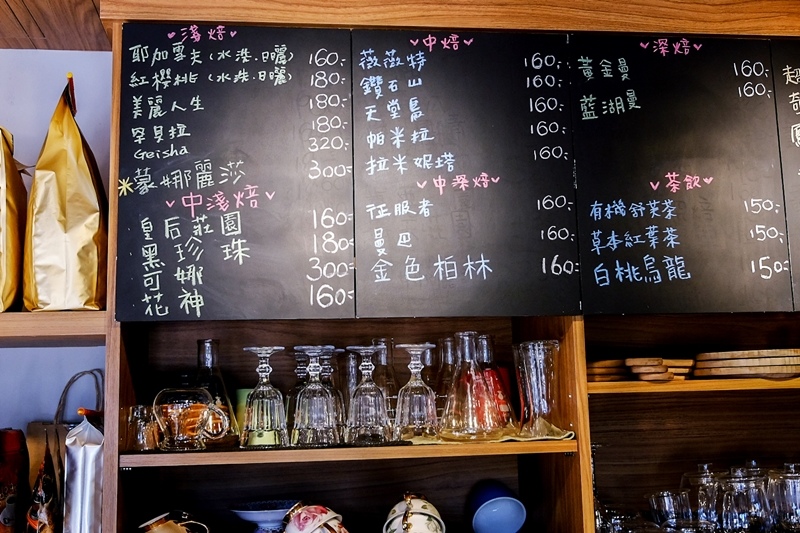 淺焙
耶加雪夫(水洗.日曬) 160.-
紅櫻桃(水洗.日曬) 180.-
美麗人生 180.-
罕貝拉 180.-
Geisha 320.-
蒙娜麗莎 300.-
中淺焙
皇后莊園 160.-
黑珍珠 180.-
可娜 300.-
花神 160.-
中焙
薇薇特 160.-
鑽石山 160.-
天堂鳥 160.-
帕米拉 160.-
拉米妮塔 160.-
中深焙
征服者 160.-
曼巴 160.-
金色柏林 160.-
深焙
黃金曼 160.-
藍湖曼 160.-
茶飲
有機舒芙茶 150.-
草本紅葉茶 150.-
白桃烏龍 150.-